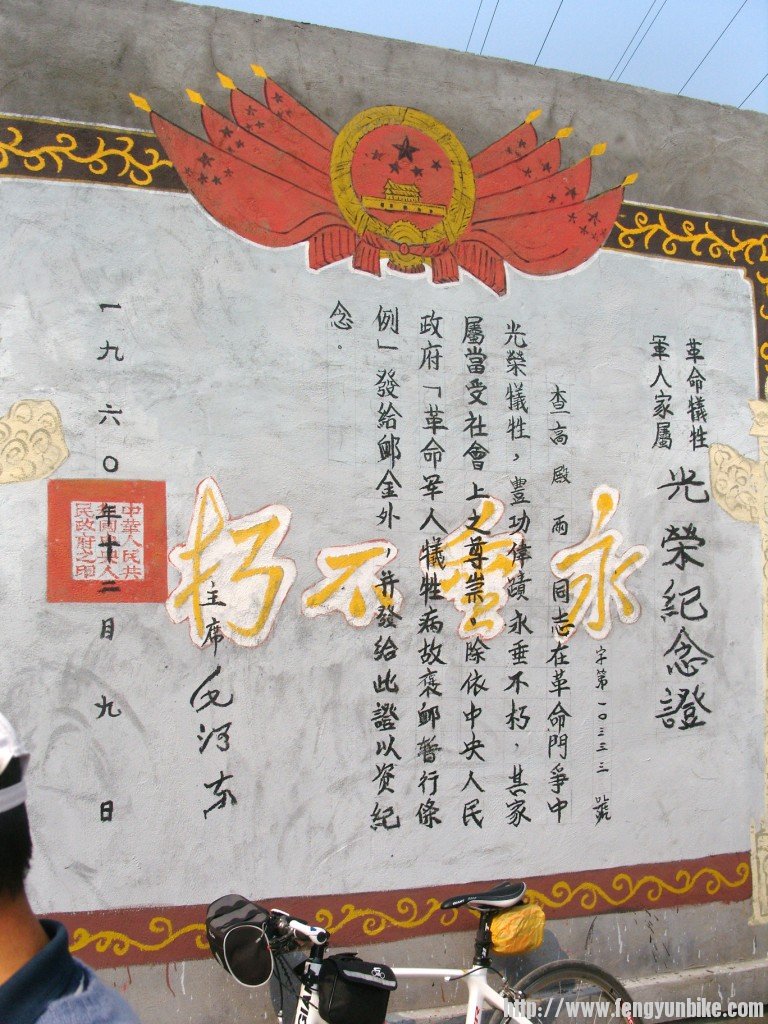 革命犧牲
軍人家屬
光榮紀念證
字第一〇三三三號
查高殿雨同志在革命鬥爭中
光榮犧牲，豐功偉蹟永垂不朽．其家
屬當受社會上之尊崇，除依中央人民
政府「革命軍人犧牲病故褒卹暫行條
例」發給卹金外，并發給此證以资紀
念．
永垂不朽
主席毛泽东
一九六〇年十二月九日
中華人民共
和國中央人
民政府之印
GIANT
http://www.fengyunbike.com